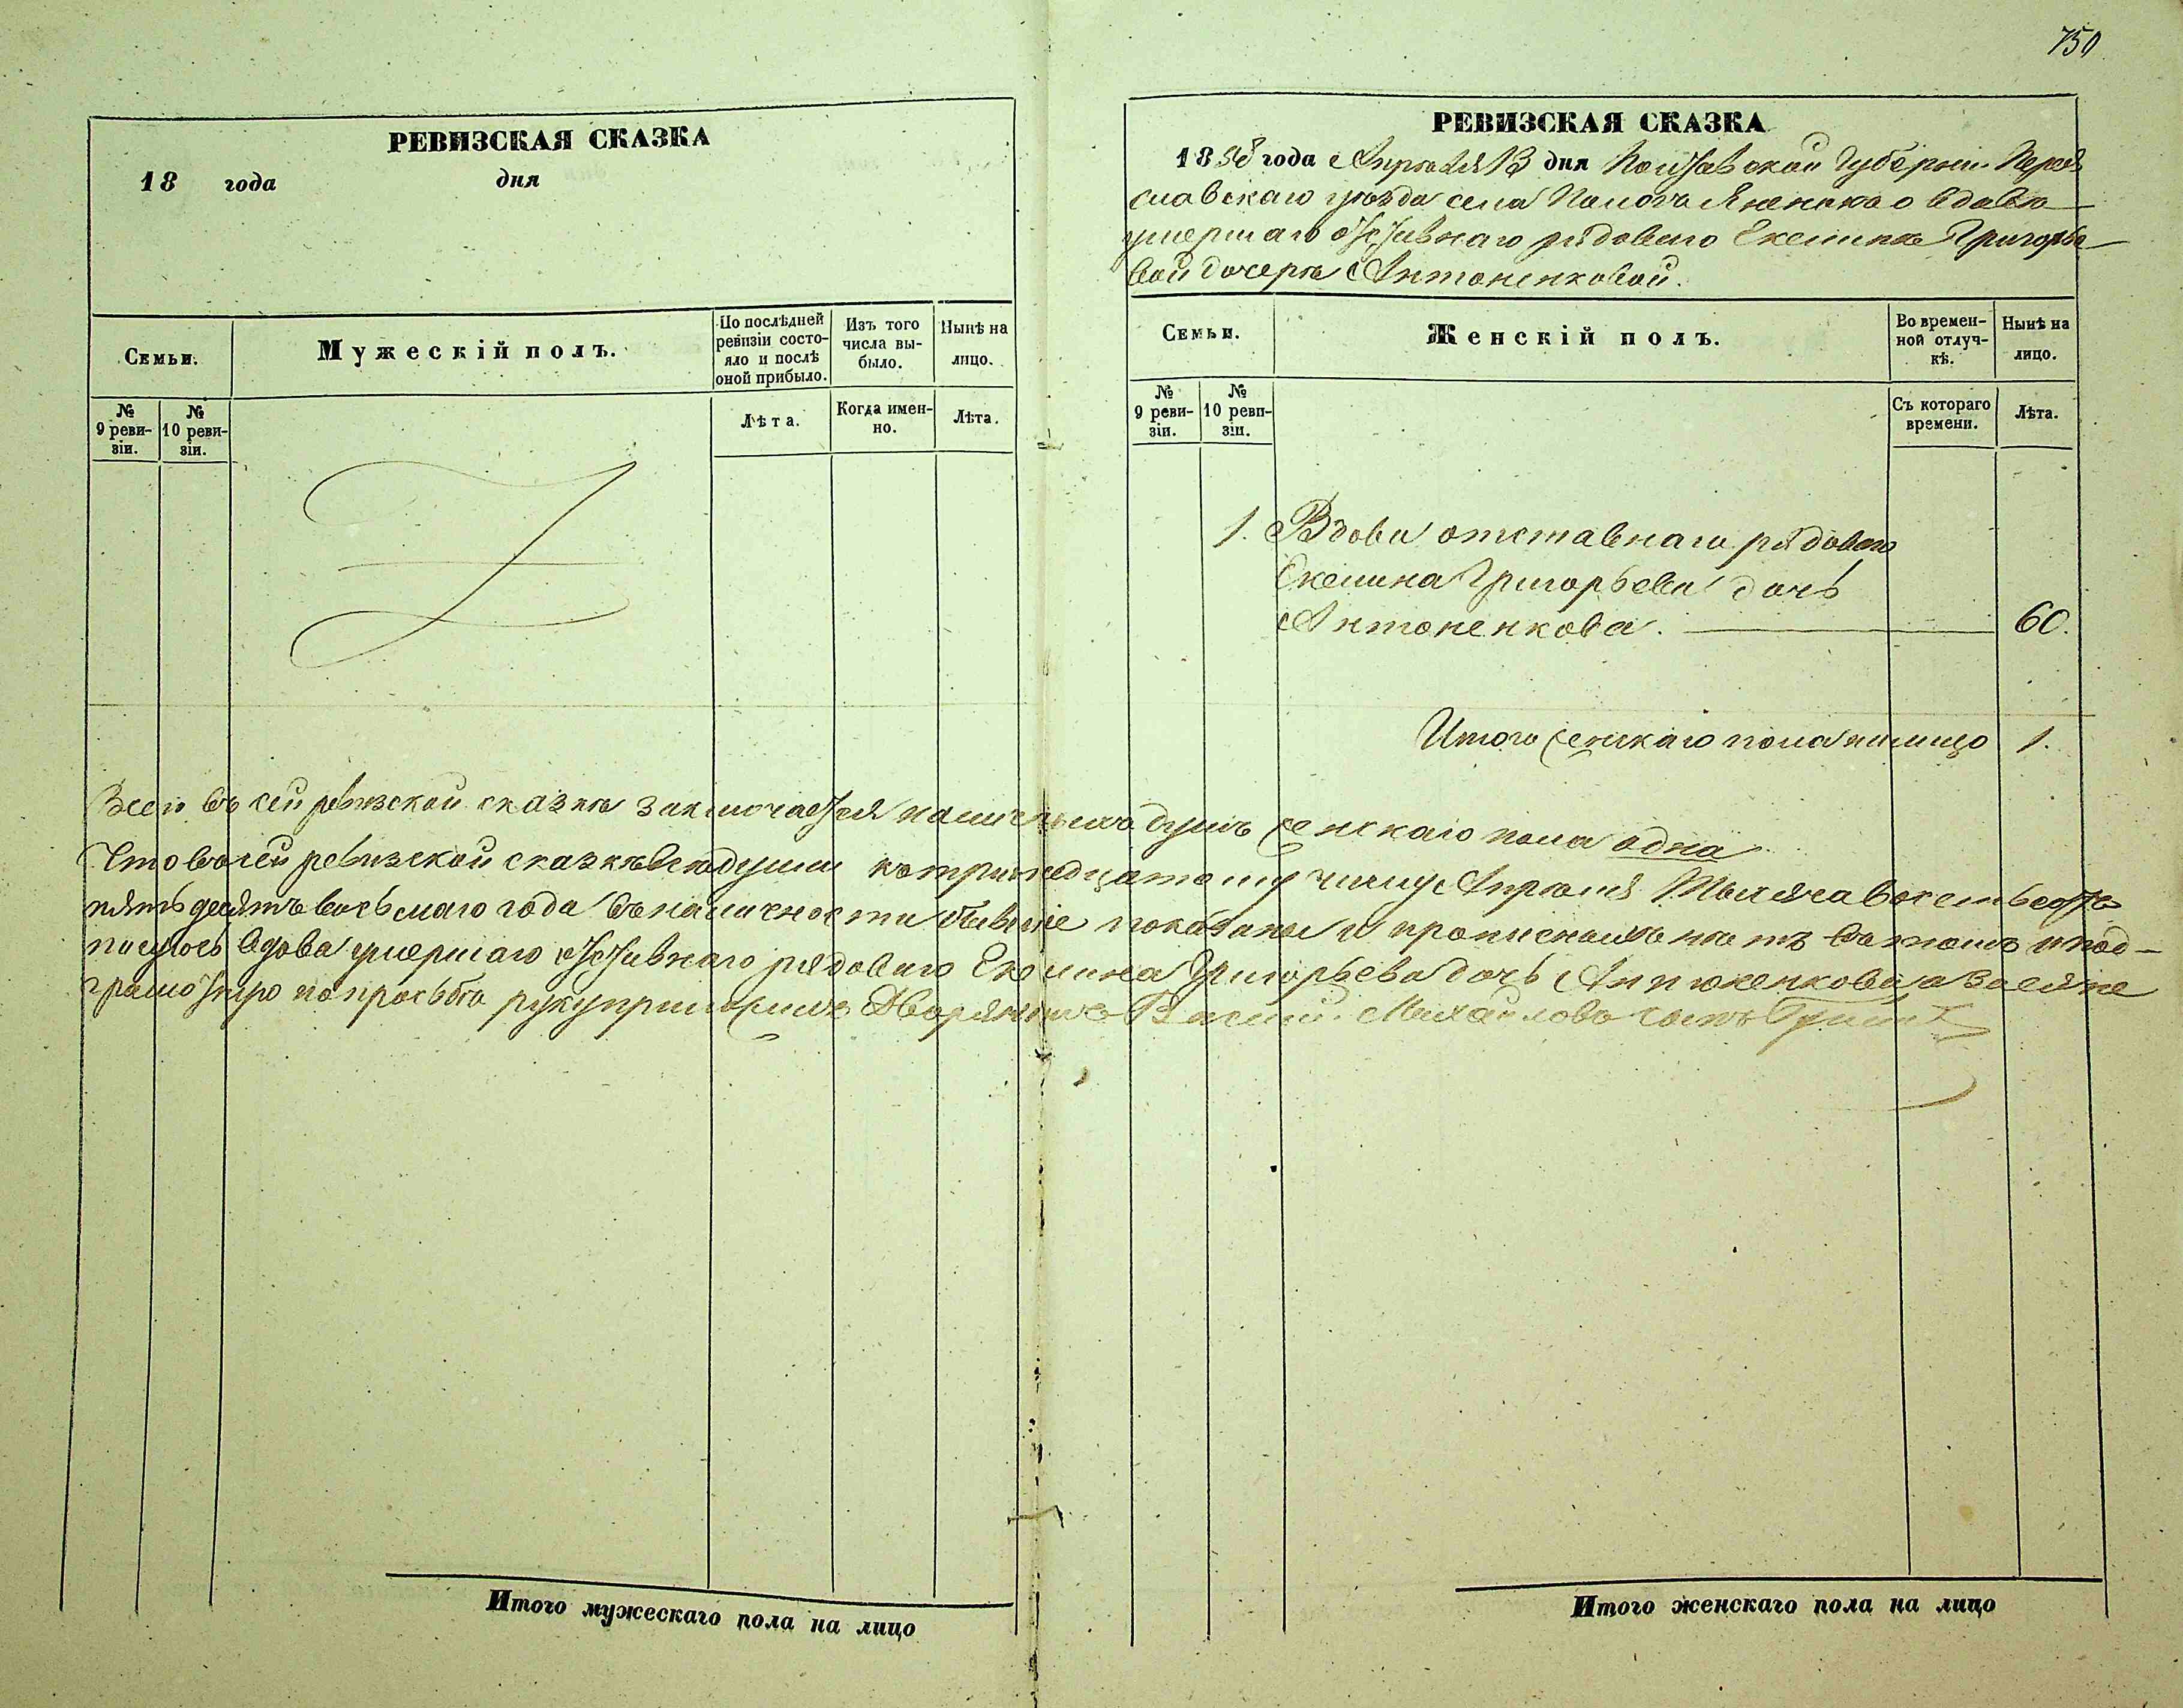 750
РЕВИЗСКАЯ СКАЗКА
18 года дня
Семьи.
Мужескій полъ.
По послѣдней ревизіи состояло и послѣ оной прибыло.
Изъ того числа выбыло.
Ныне на лицо.
№ 9 ревизіи.
№ 10 ревизіи.
Лѣта.
Когда именно.
Лѣта.
РЕВИЗСКАЯ СКАЗКА
1858 года Апрѣля 13 дня Полтавской Губерніи Перея
славскаго уѣзда села вдовы
умершаго отставнаго рядоваго Екелины Григорье
вой дочери Антоненковой.
Семьи.
Женскій полъ.
Во временной отлучкѣ.
Нынѣ на лицо.
№ 9 ревизіи.
№ 10 ревизіи.
Съ котораго времени.
Лѣта.
1. Вдова отставнаго рядоваго
Екелина Григорьева дочь
Антоненкова. 60.
Итого женскаго пола налицо 1.
Всего въ сей ревизской сказкѣ заключается наличныхъ душъ женскаго пола одна
Что въ сей ревизской сказкѣ всѣ души къ тринадцатому числу Апрѣля Тысяча восемьсотъ
пятьдесятъ восьмаго года въ наличности бывшіе показаны и прописныхъ нѣтъ въ томъ и под-
писуюсь вдова умершаго отставнаго рядоваго Екелина Григорьева дочь Антоненкова а за ея не
грамотную по просьбѣ руку приложилъ Дворянинъ Василий Михайловъ сынъ
Итого мужескаго пола на лицо
Итого женскаго пола на лицо